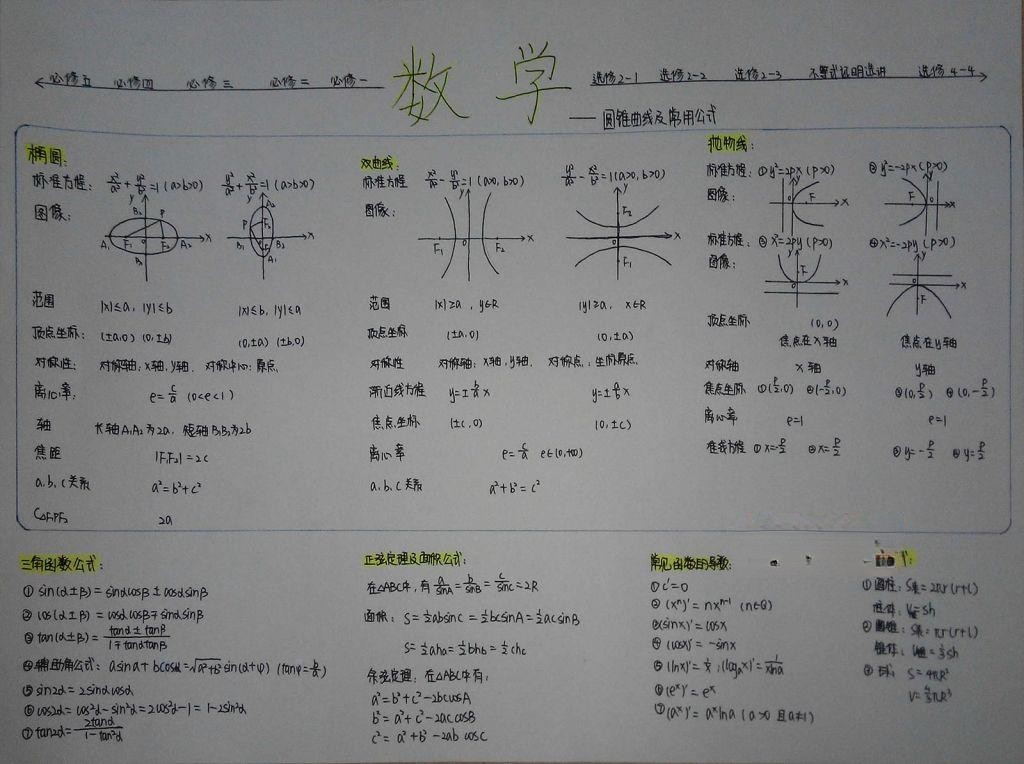 数 学
必修五 必修四 必修三 必修二 必修一
选修2-1 选修2-2 选修2-3 不等式证明选讲 选修4-4
——圆锥曲线及常用公式
椭圆:
标准方程: x²/a²+y²/b²=1 (a>b>0) y²/a²+x²/b²=1 (a>b>0)
图像:
y B₂ P A₁ F₁ 0 F₂ A₂ x B₁
y A₂ P F₂ B₁ 0 B₂ x F₁ A₁
范围 |x|≤a, |y|≤b |x|≤b, |y|≤a
顶点坐标: (±a,0) (0,±b) (0,±a) (±b,0)
对称性: 对称轴:x轴,y轴. 对称中心:原点.
离心率: e=c/a (0<e<1)
轴 长轴A₁A₂为2a, 短轴B₁B₂为2b
焦距 |F₁F₂|=2c
a,b,c关系 a²=b²+c²
C△F₁PF₂ 2a
双曲线:
标准方程 x²/a²-y²/b²=1 (a>0, b>0) y²/a²-x²/b²=1 (a>0, b>0)
图像:
y F₁ 0 F₂ x
y F₂ 0 x F₁
范围 |x|≥a, y∈R |y|≥a, x∈R
顶点坐标: (±a,0) (0,±a)
对称性 对称轴:x轴,y轴. 对称点:坐标原点.
渐近线方程 y=±b/a x y=±a/b x
焦点坐标 (±c,0) (0,±c)
离心率 e=c/a e∈(0,+∞)
a,b,c关系 a²+b²=c²
抛物线:
标准方程: ①y²=2px (p>0) ②y²=-2px (p>0)
图像:
y 0 F x
y F 0 x
标准方程: ③x²=2py (p>0) ④x²=-2py (p>0)
图像:
y F 0 x
y 0 F x
顶点坐标 (0,0)
焦点在x轴 焦点在y轴
对称轴 x轴 y轴
焦点坐标 ①(p/2,0) ②(-p/2,0) ③(0,p/2) ④(0,-p/2)
离心率 e=1 e=1
准线方程 ①x=-p/2 ②x=p/2 ③y=-p/2 ④y=p/2
三角函数公式:
①sin(α±β)=sinαcosβ±cosαsinβ
②cos(α±β)=cosαcosβ∓sinαsinβ
③tan(α±β)=(tanα±tanβ)/(1∓tanαtanβ)
④辅助角公式: asinα+bcosα=√(a²+b²)sin(α+φ) (tanφ=b/a)
⑤sin2α=2sinαcosα
⑥cos2α=cos²α-sin²α=2cos²α-1=1-2sin²α
⑦tan2α=2tanα/(1-tan²α)
正弦定理及面积公式:
在△ABC中,有 a/sinA=b/sinB=c/sinC=2R
面积: S=½absinC=½bcsinA=½acsinB
S=½aha=½bhb=½chc
余弦定理: 在△ABC中有:
a²=b²+c²-2bccosA
b²=a²+c²-2accosB
c²=a²+b²-2abcosC
常见函数的导数:
①c'=0
②(xⁿ)'=nxⁿ⁻¹ (n∈Q)
③(sinx)'=cosx
④(cosx)'=-sinx
⑤(lnx)'=1/x; (logₐx)'=1/xlna
⑥(eˣ)'=eˣ
⑦(aˣ)'=aˣlna (a>0 且a≠1)
①圆柱: S表=2πr(r+l)
柱体: V=sh
②圆锥: S表=πr(r+l)
锥体: V=⅓sh
③球: S=4πR²
V=4/3πR³